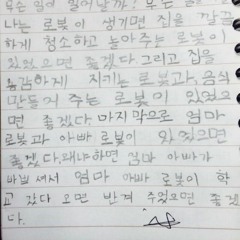 무슨 일이 일어날까?
나는 로봇이 생기면 집을 깔끔
하게 청소하고 놀아주는 로봇이
있었으면 좋겠다 그리고 집을
용감하게 지키는 로봇과, 음식
만들어 주는 로봇이 있었으
면 좋겠다 마지막으로 엄마
로봇과 아빠 로봇이 있었으면
좋겠다. 왜냐하면 엄마 아빠가
바빠셔서 엄마 아빠 로봇이 학
교 갔다 오면 반겨 주었으면 좋겠
다.